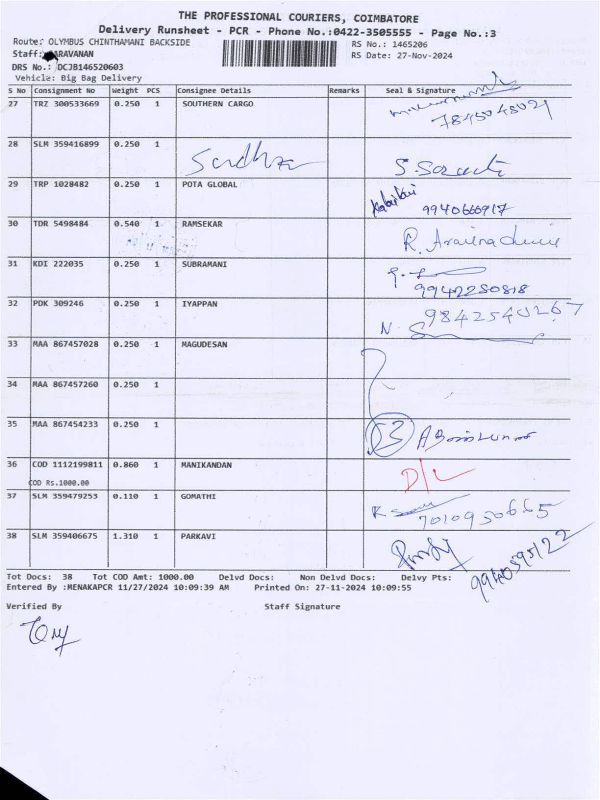 THE PROFESSIONAL COURIERS, COIMBATORE
Delivery Runsheet - PCR - Phone No.:0422-3505555 - Page No.:3
Route: OLYMBUS CHINTHAMANI BACKSIDE
RS No.: 1465206
Staff: ARAVANAN
RS Date: 27-Nov-2024
DRS No.: DCJB146520603
Vehicle: Big Bag Delivery
S No Consignment No Weight PCS Consignee Details Remarks Seal & Signature
27 TRZ 300533669 0.250 1 SOUTHERN CARGO
7845045021
28 SLM 359416899 0.250 1
29 TRP 1028482 0.250 1 POTA GLOBAL
9940666917
30 TDR 5498484 0.540 1 RAMSEKAR
31 KDI 222035 0.250 1 SUBRAMANI
9942250818
32 PDK 309246 0.250 1 IYAPPAN 9842540267
N.
33 MAA 867457028 0.250 1 MAGUDESAN
34 MAA 867457260 0.250 1
35 MAA 867454233 0.250 1
36 COD 1112199811 0.860 1 MANIKANDAN D/L
COD Rs.1000.00
37 SLM 359479253 0.110 1 GOMATHI
7010950665
38 SLM 359406675 1.310 1 PARKAVI
9940595122
Tot Docs: 38 Tot COD Amt: 1000.00 Delvd Docs: Non Delvd Docs: Delvy Pts:
Entered By :MENAKAPCR 11/27/2024 10:09:39 AM Printed On: 27-11-2024 10:09:55
Verified By Staff Signature